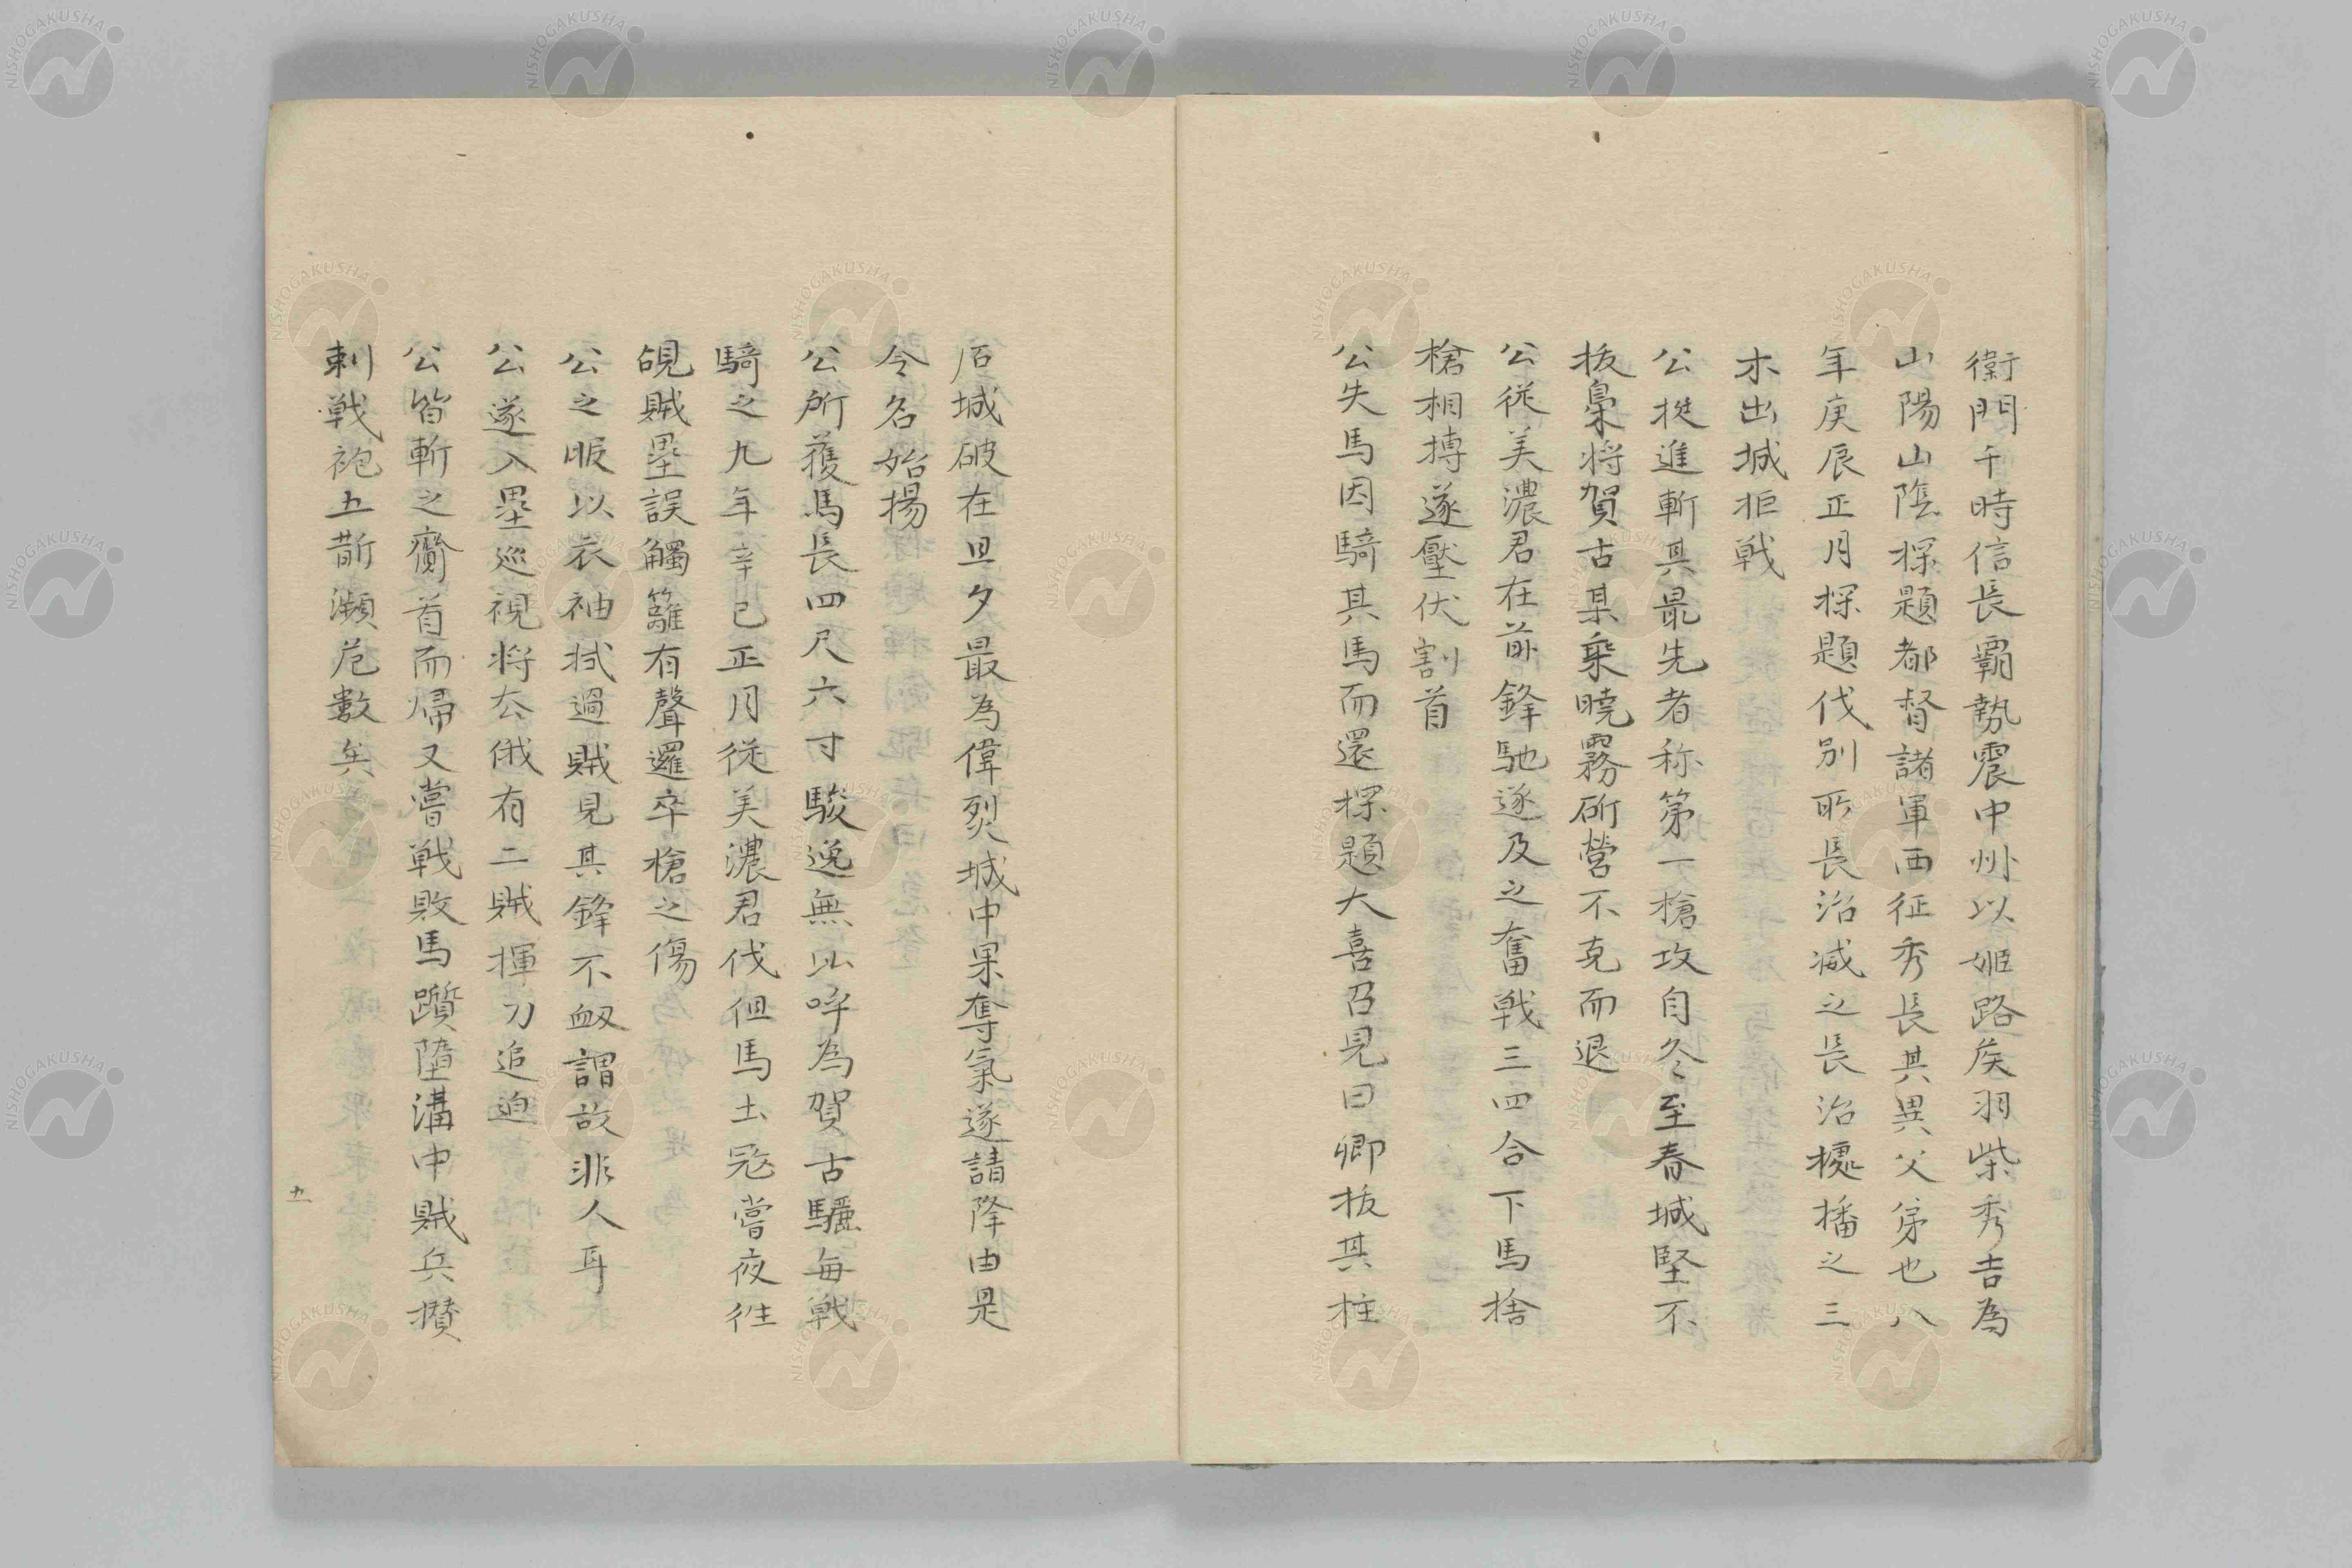 衛門于時信長霸勢震中州以姬路矦羽柴秀吉為
山陽山陰探題都督諸軍西征秀長其異父弟也八
年庚辰正月探題伐別所長治滅之長治㯫播之三
木出城拒戦
公挺進斬其最先者称第一槍攻自冬至春城堅不
抜梟将賀古某乗暁霧斫營不克而退
公従美濃君在前鋒馳逐及之奮戦三四合下馬捨
槍相搏遂壓伏割首
公失馬因騎其馬而還探題大喜召見曰卿抜其柱
石城破在旦夕最為偉烈城中果奪氣遂請降由是
令名始揚
公所獲馬長四尺六寸駿逸無比呼為賀古驪每戦
騎之九年辛巳正月従美濃君伐但馬土冦嘗夜徃
覘賊壘誤觸籬有聲邏卒槍之傷
公之眼以衣袖拭過賊見其鋒不衂謂故非人耳
公遂入壘巡視将去俄有二賊揮刀追迫
公皆斬之齎首而帰又嘗戦敗馬躓墮溝中賊兵攅
刺戦袍五斮瀕危數矣
五
NISHOGAKUSHA